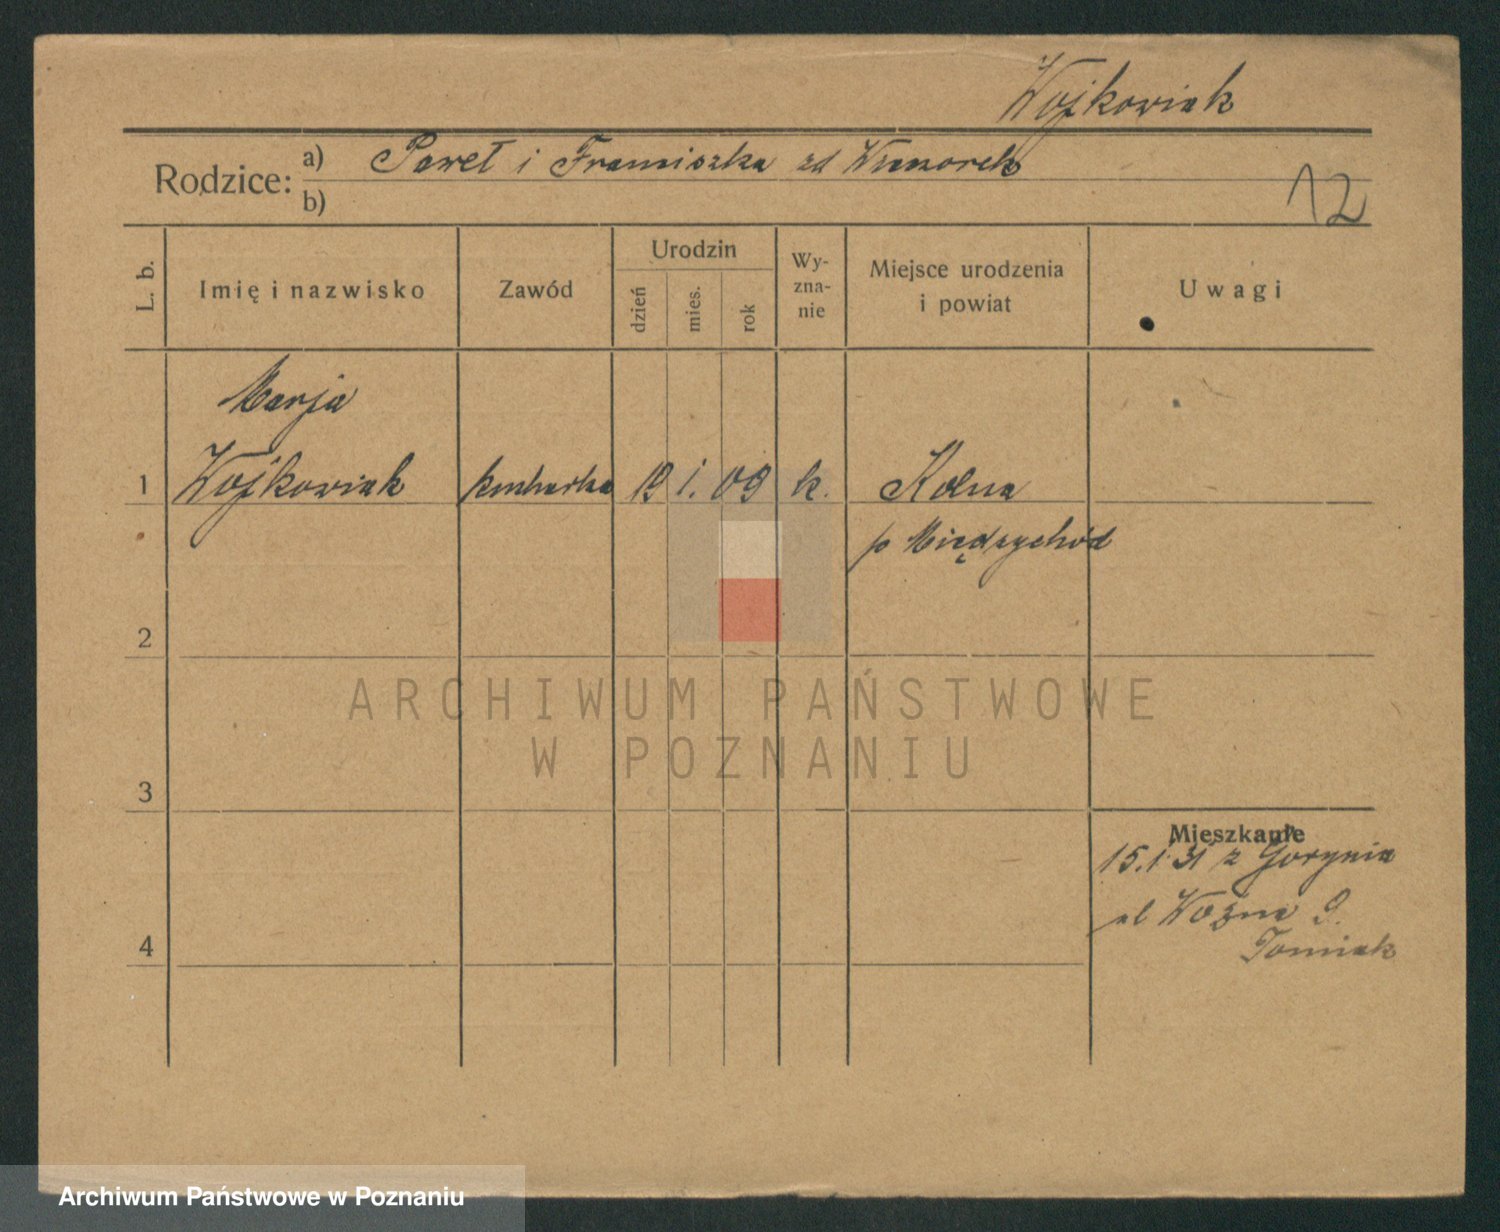 Wojkowiak
Rodzice: a) Paweł i Franciszka zd
b)
12
L. b. Imię i nazwisko Zawód Urodzin dzień mies. rok Wy-zna-nie Miejsce urodzenia i powiat Uwagi
Marja
1 Wojkowiak kucharka 19 1. 09 k. Kolna
p Międzychód
2
ARCHIWUM PAŃSTWOWE
W POZNANIU
3
Mieszkanie
15.1 31 z Gorynia
ul Woźna 9.
4 Tomiak
Archiwum Państwowe w Poznaniu